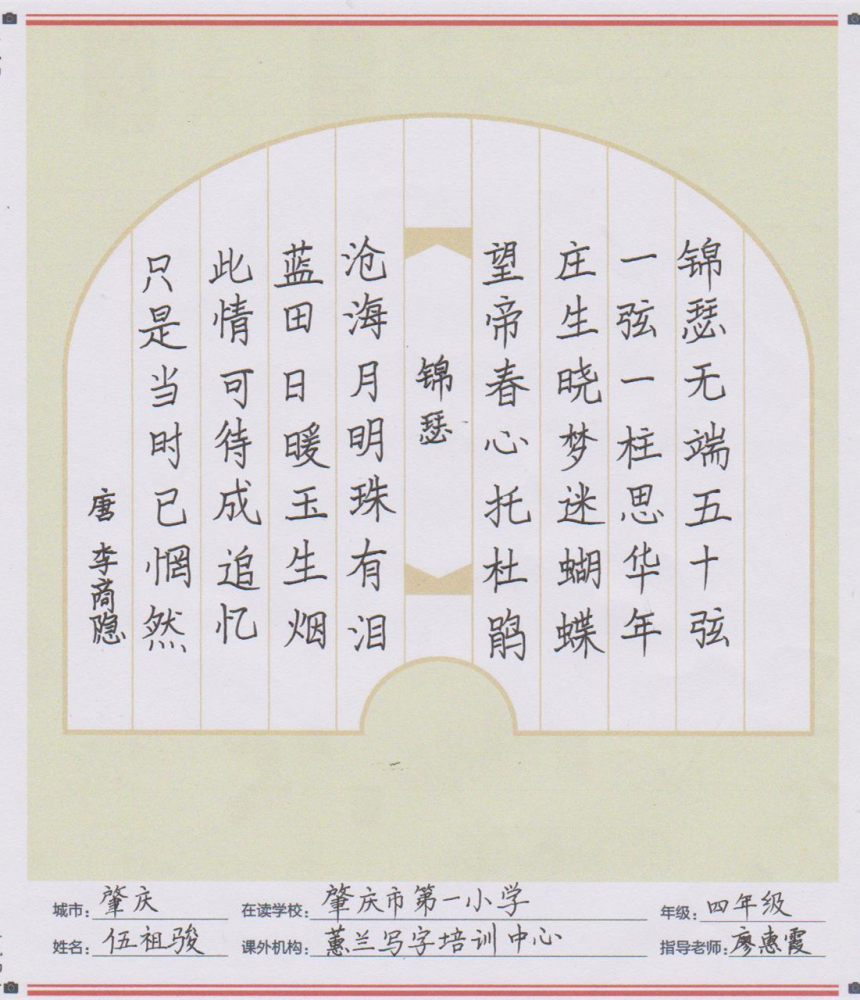 锦瑟无端五十弦
一弦一柱思华年
庄生晓梦迷蝴蝶
望帝春心托杜鹃
锦瑟
沧海月明珠有泪
蓝田日暖玉生烟
此情可待成追忆
只是当时已惘然
唐 李商隐
城市：肇庆 在读学校：肇庆市第一小学 年级：四年级
姓名：伍祖骏 课外机构：蕙兰写字培训中心 指导老师：廖惠霞